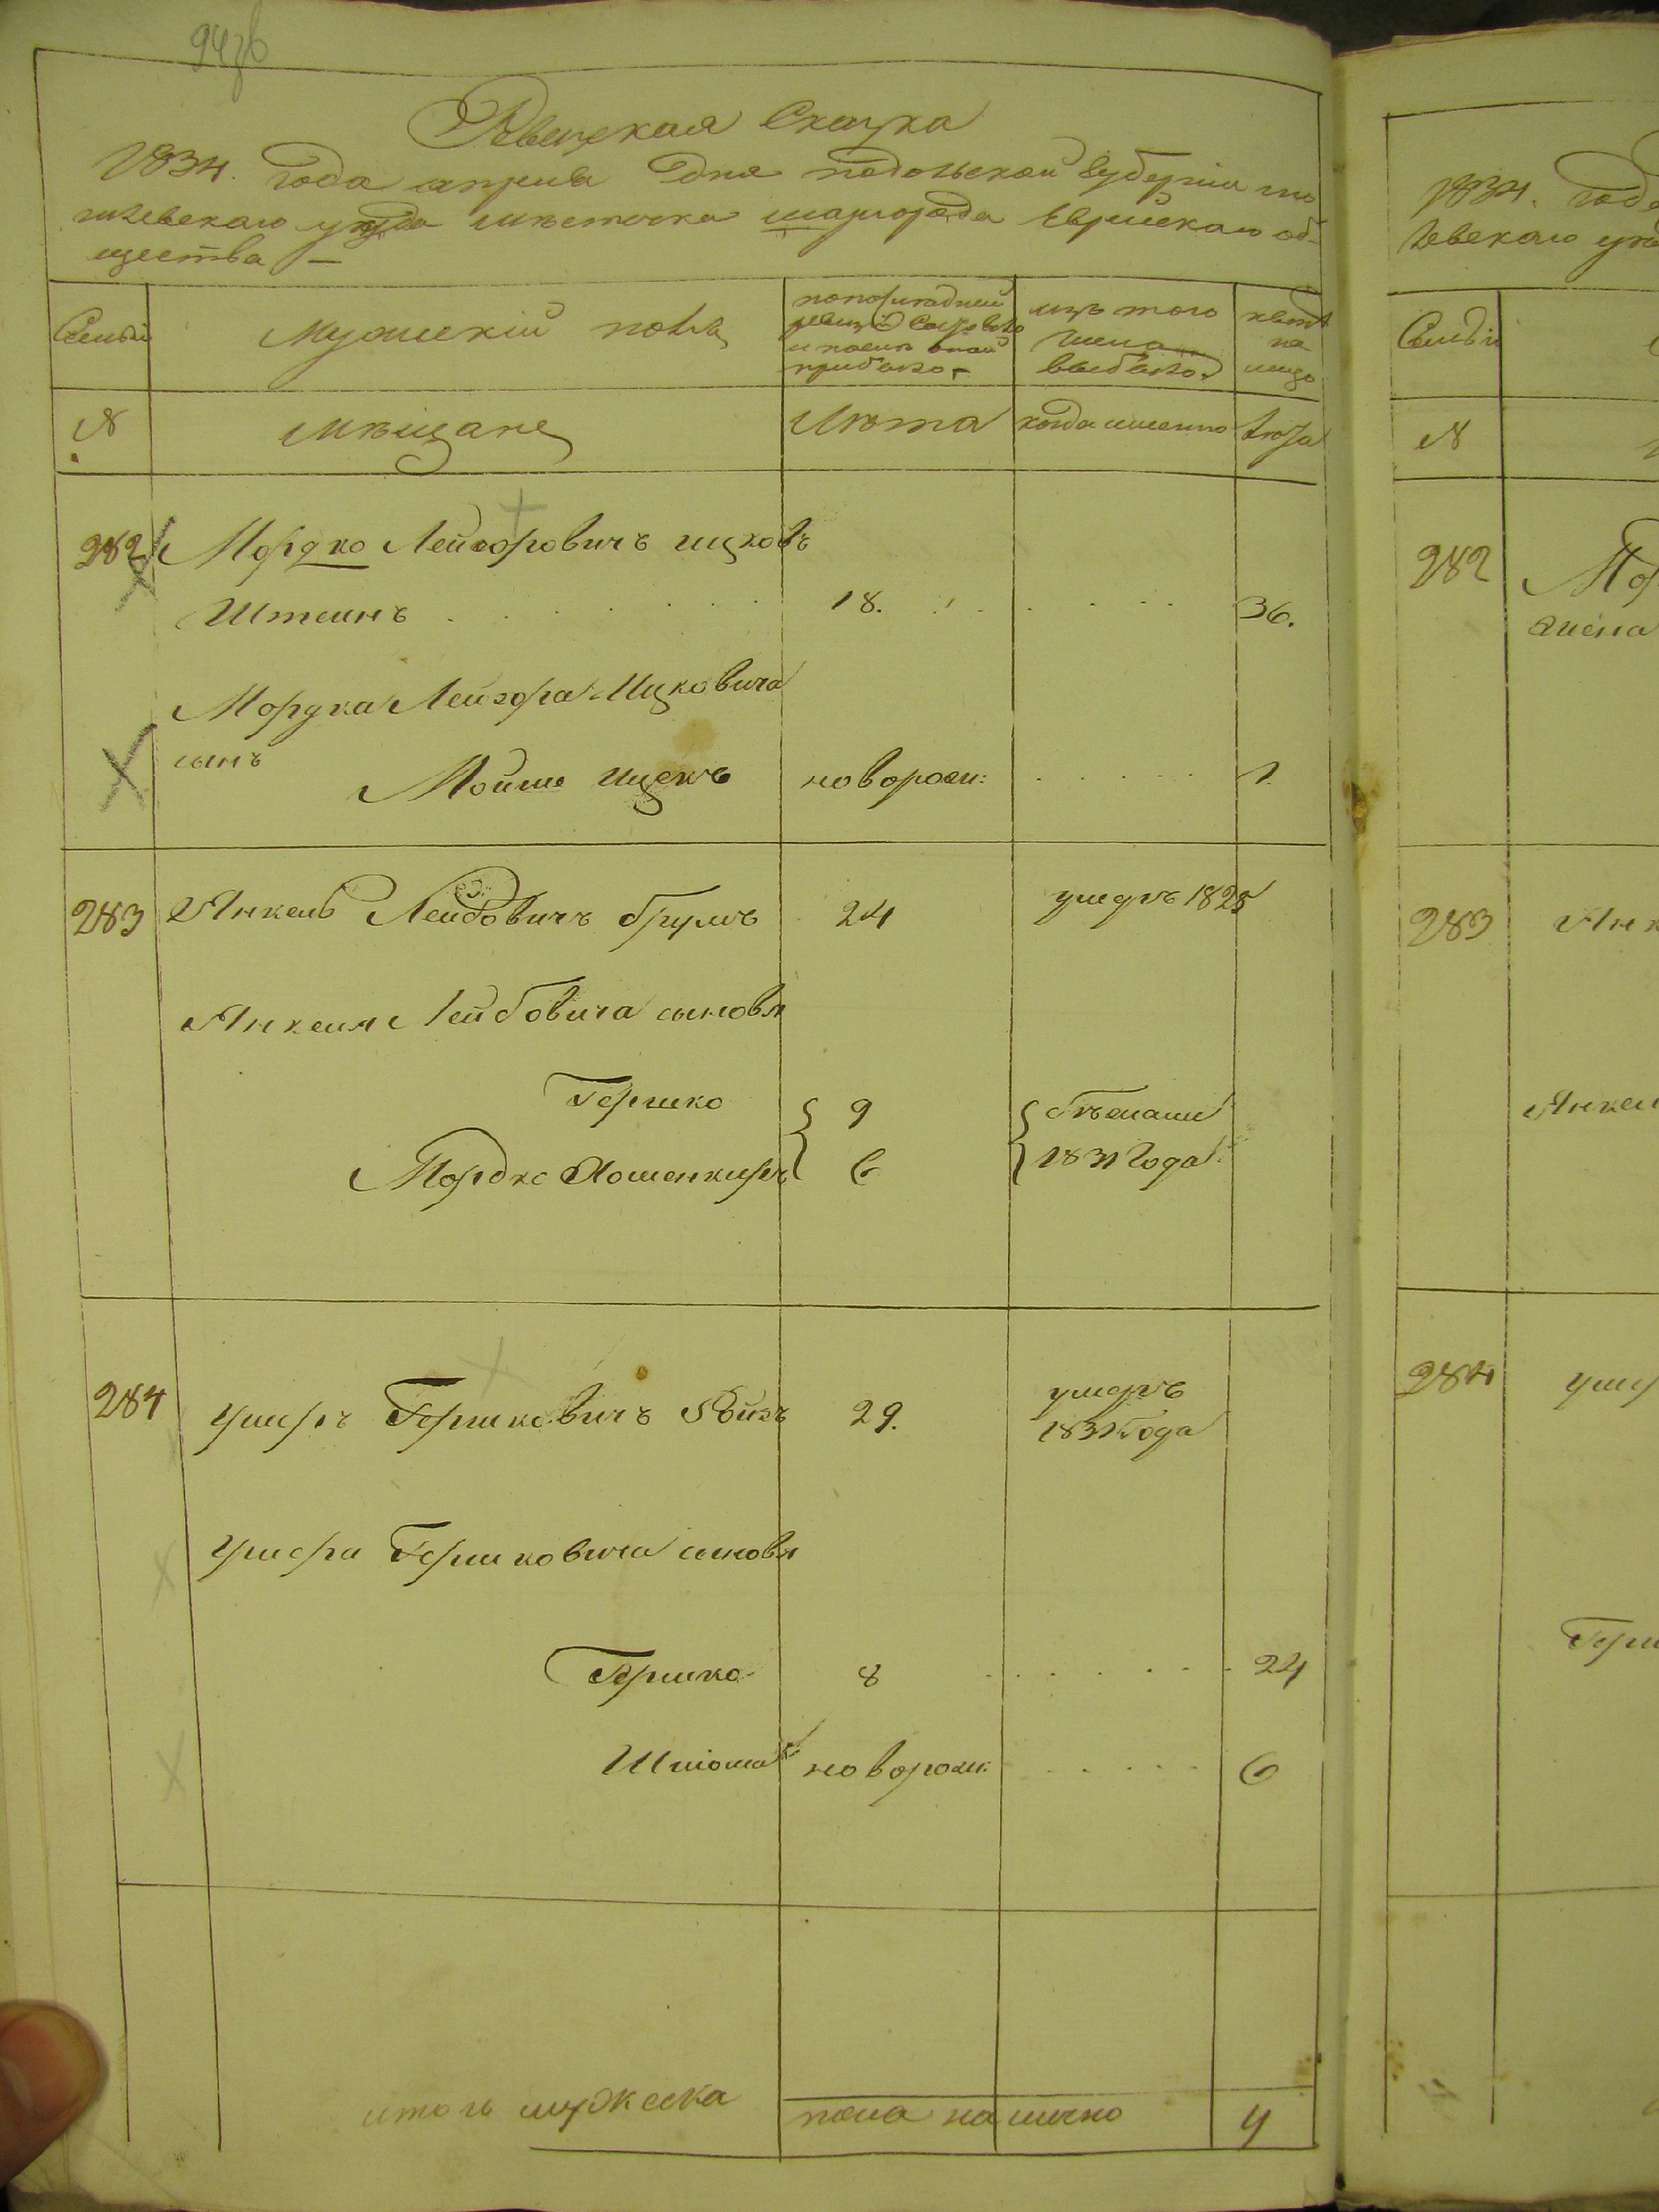 Ревизская Сказка
1834. года апреля дня подольской губернии мо
гилевскаго уезда местечка шаргорода Еврейскаго об-
щества
Семьи
Мужескій полъ
по последней
ревизіи состояло
и после оной
прибыло
изъ того
числа
выбыло
ныне
на
лицо
№
мещане
Лета
когда именно
Лета
282
Мордко Лейзоровичъ ицковъ
Штеинъ
18.
36.
Мордка Лейзора Ицковича
сынъ
Мойше ицекъ
новорож:
1
283
Янкель Лейбовичъ брумъ
24
умеръ 1825
Янкеля Лейбовича сыновя
Гершко
9
бежали
Мордко
6
1831 года
284
Ушеръ Гершковичъ Ройзъ
29.
умеръ
1831 года
Ушера Гершковича сыновя
Гершко
8
24
Шліома
новорож:
6
итого мужеска
пола на лично
4
1834. года
левскаго уез
Семьи
№
282
Мор
жена
283
Янк
Янкел
284
Ушер
Герш